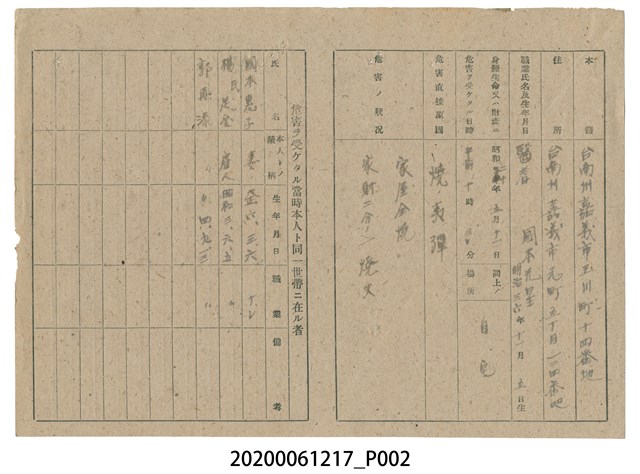 本籍 台南州嘉義市玉川町十四番地
住所 台南州嘉義市元町五丁目一一四番地
職業氏名及生年月日 醫者 岡本 明治 年十一月五日生
身體生命又ハ財産ニ危害ヲ受ケタル日時 昭和 年五月十二日 午前十時 分
同上ノ場所 自宅
危害直接原因 燒夷彈
危害ノ狀況 家屋全燒
家財二分ノ一燒失
危害ヲ受ケタル當時本人ト同一世帶ニ在ル者
氏名 本人トノ續柄 生年月日 職業 備考
岡本惠子 妻 六、三、六 ナシ
楊氏 雇人 昭和三、六、五 〃
郭 〃 〃 四、九、 〃
20200061217_P002